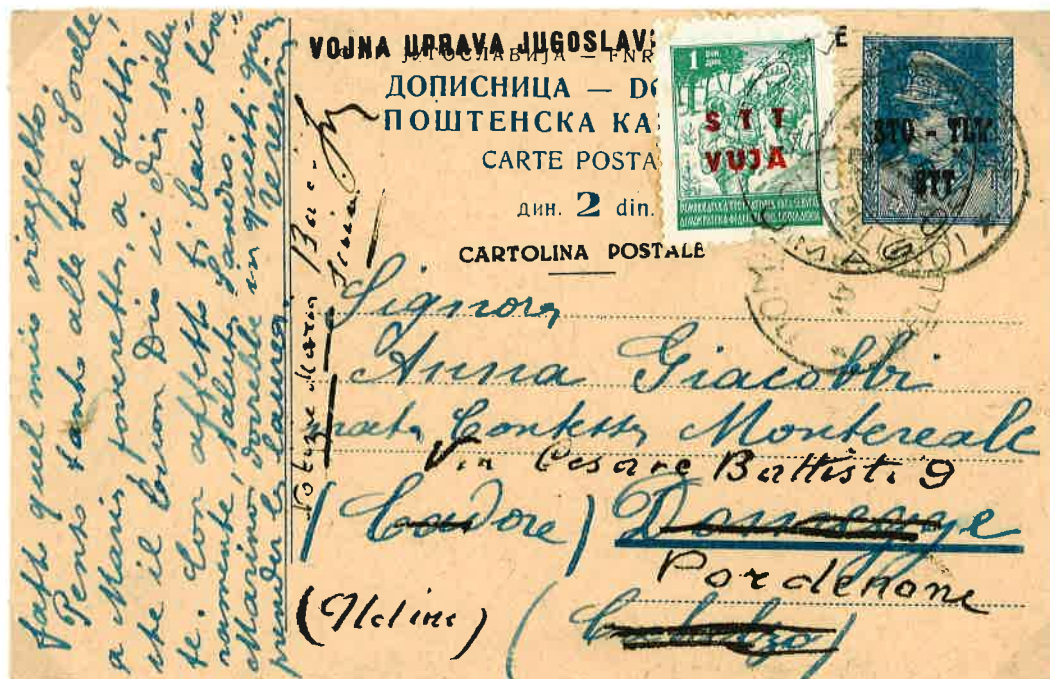 VOJNA UPRAVA JUGOSLAV E
ЈУГОСЛАВИЈА — FNR
ДОПИСНИЦА — DO
ПОШТЕНСКА КА
CARTE POSTA
дин. 2 din.
CARTOLINA POSTALE
1 DIN ДИН
STT
VUJA
STO - TLT
STT
Signora
Anna Giacobbi
nata Contessa Montereale
Via Cesare Battisti 9
(Cadore) Domegge
Pordenone
(Udine)
fatto quel mio viaggetto.
Penso tanto alle tue Sorelle,
a Maria poveretta, a tutti!
che il buon Dio ci dia salu-
te. Con affetto ti bacio tene-
ramente, saluta Sandro.
Marino dovrebbe in questi giorni
prendere la laurea
Notaio Maria